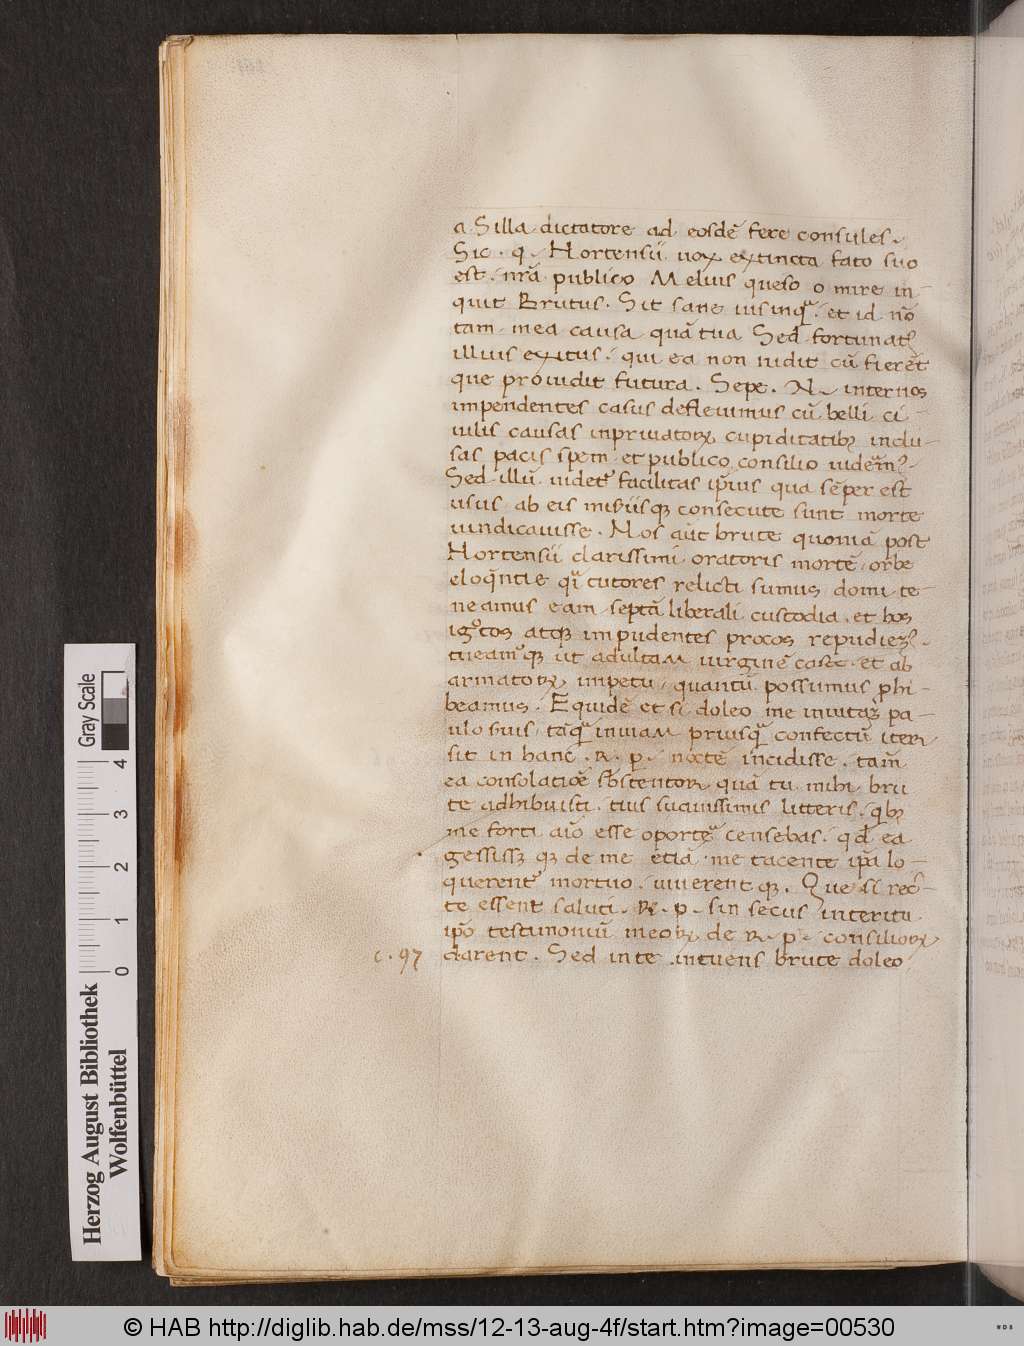 a Silla dictatore ad eosdē fere consules.
Sic. q. Hortensii uox extincta fato suo
est. nrā publico Melius queso o mire in-
quit Brutus. Sit sane ius inqᵃ. et id nō
tam mea causa quā tua Sed fortunatꝰ
illius exitus. qui ea non uidit cū fierēt
que prouidit futura. Sepe. N. inter nos
impendentes casus defleuimus cū belli ci-
uilis causas in priuatorꝝ cupiditatibꝫ inclu-
sas pacis spem et publico consilio
Sed illū uidetˀ facilitas ip̄ius qua sēper est
usus ab eis miseriisqꝫ consecute sunt morte
uindicauisse. Nos aūt brute quoniā post
Hortensii clarissimi oratoris mortē orbe
eloqntie qᵃ tutores relicti sumus domi te-
neamus eam septā liberali custodia. et hos
igᵒtos atqꝫ impudentes procos
tueamˀqꝫ ut adultam uirginē caste. et ab
armatorꝝ impetu quantū possumus phi-
beamus. Equidē et si doleo me in uitā pa-
ulo tāqᵃ in uiam priusqᵃ confectū iter
sit in hanc. R. p. noctē incidisse. tam̄
ea consolatiōe sustentor quā tu mihi bru
te adhibuisti tuis suauissimis litteris. qbꝫ
me forti aīo esse oporte censebas. qd ea
gessissꝫ qꝫ de me etiā me tacente ip̄a lo-
querentˀ mortuo. uiuerentqꝫ. Que si rec-
te essent saluti. R. p. sin secus interitu
ip̄o testimoniū meorꝝ de R. p. consiliorꝝ
c. 97 darent. Sed in te intuens brute doleo
4
3
2
1
0
Gray Scale
Herzog August Bibliothek
Wolfenbüttel
© HAB http://diglib.hab.de/mss/12-13-aug-4f/start.htm?image=00530